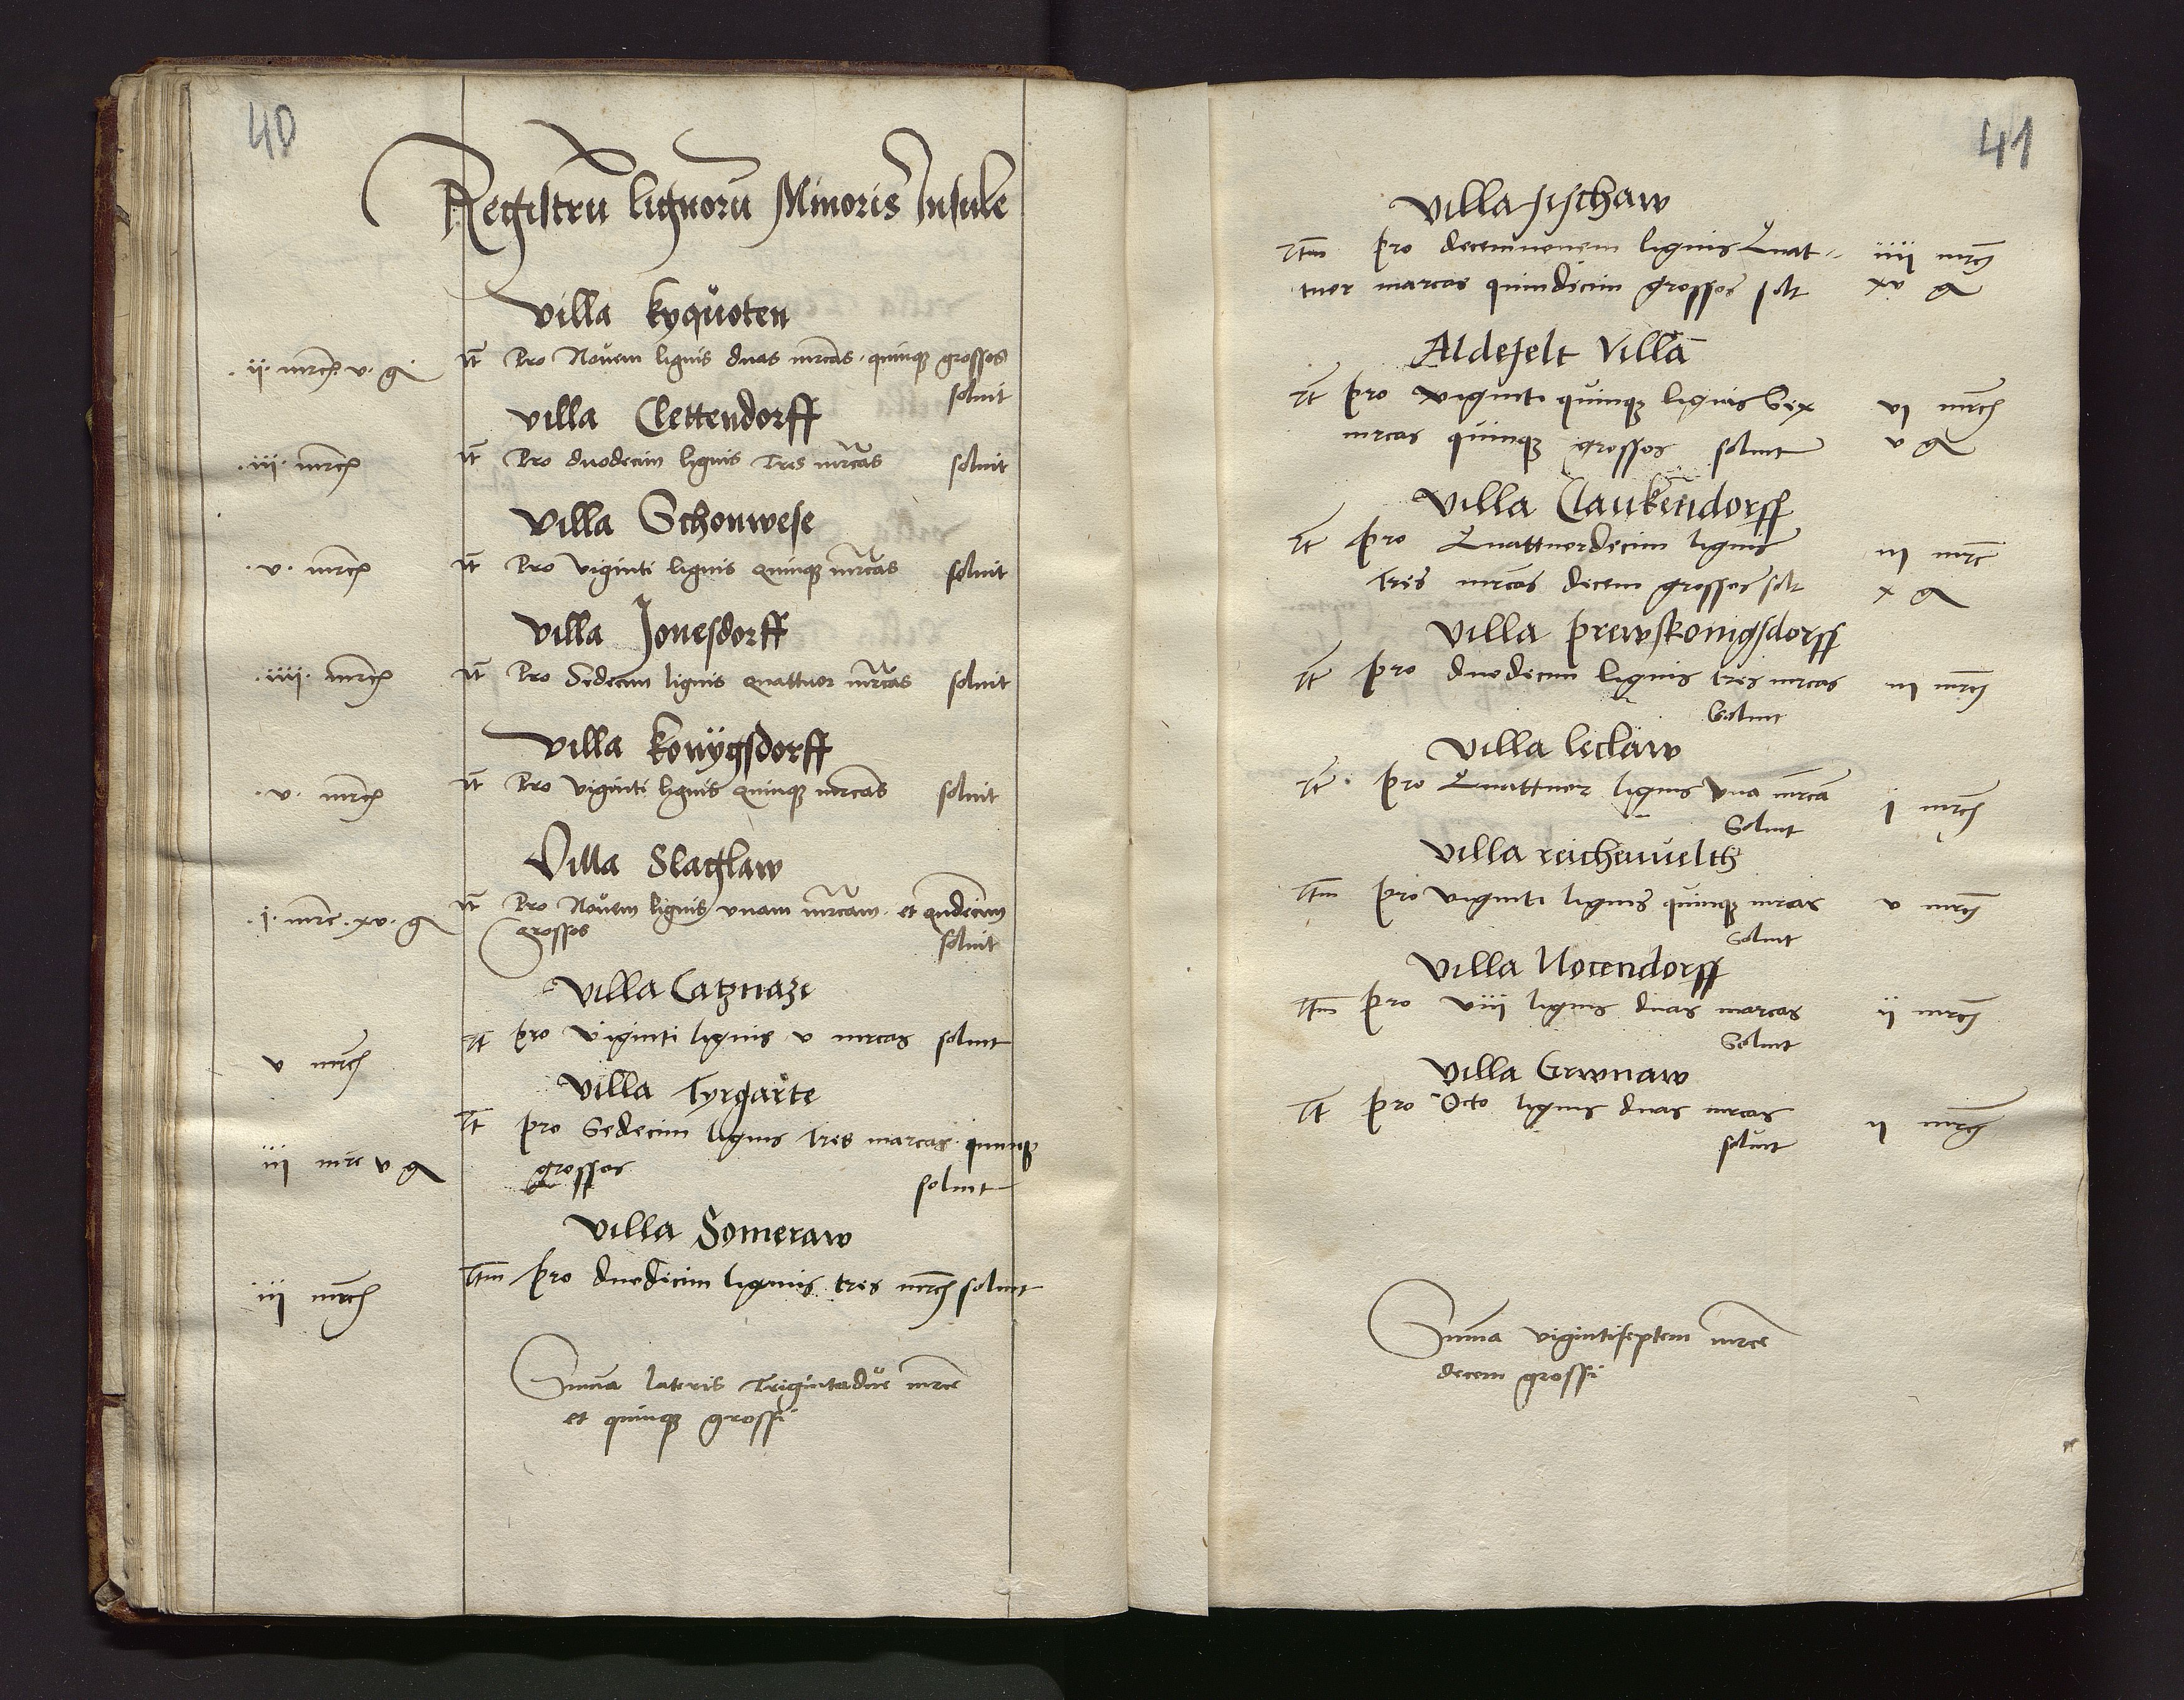 40
Registrũ lignorũ Minoris Insule
Villa Kyquoten
.ii. mrcẜ. v. g̃ It Pro Nouem lignis duas mrcas quinqꝫ grossos
soluit
Villa Clettendorff
.iii. mrcẜ It Pro duodecim lignis Tres mrcas soluit
Villa Schonwese
.v. mrcẜ It Pro viginti lignis quinqꝫ mrcas soluit
Villa Jonesdorff
.iiii. mrcẜ It Pro Sedecim lignis quattuor mrcas soluit
Villa Konÿgsdorff
.v. mrcẜ It Pro viginti lignis quinqꝫ mrcas soluit
Villa Slaglaw
.i. mrc. xv. g̃ It Pro Nouem lignis vnam mrcam et qndecim
grossos soluit
Villa Catznaze
v mrcẜ It pro viginti lignis v mrcas soluit
Villa Tyrgarte
iii mrc v g̃ It pro Sedecim lignis Tres marcas quinqꝫ
grossos
soluit
Villa Someraw
iii mrcẜ Itm pro duodicim lignis tres mrcẜ soluit
Suma lateris Trigintadue mrce
et quinqꝫ grossi
41
Villa fischaw
Itm pro decemnouem lignis Quat- iiii mrcẜ
tuor marcas quindecim grossos solt xv g̃
Aldefelt Villa
It pro viginti quinqꝫ lignis Sex vi mrcẜ
mrcas quinqꝫ grossos soluit v g̃
Villa Claukendorff
It pro Quattuordecim lignis iii mrc
Tres mrcas decem grossos solt x g̃
Villa prewskonigsdorff
It pro duodecim lignis tres mrcas iii mrcẜ
Soluit
Villa leclaw
It. pro Quattuor lignis vna mrcã i mrcẜ
Soluit
Villa reichenuelth
Itm pro viginti lignis quinqꝫ mrcas v mrcẜ
Soluit
Villa Nocendorff
Itm pro viii lignis duas marcas ii mrcẜ
Soluit
Villa Grwnaw
It pro Octo lignis duas mrcas ii mrcẜ
soluit
Suma vigintiseptem mrce
decem grossi